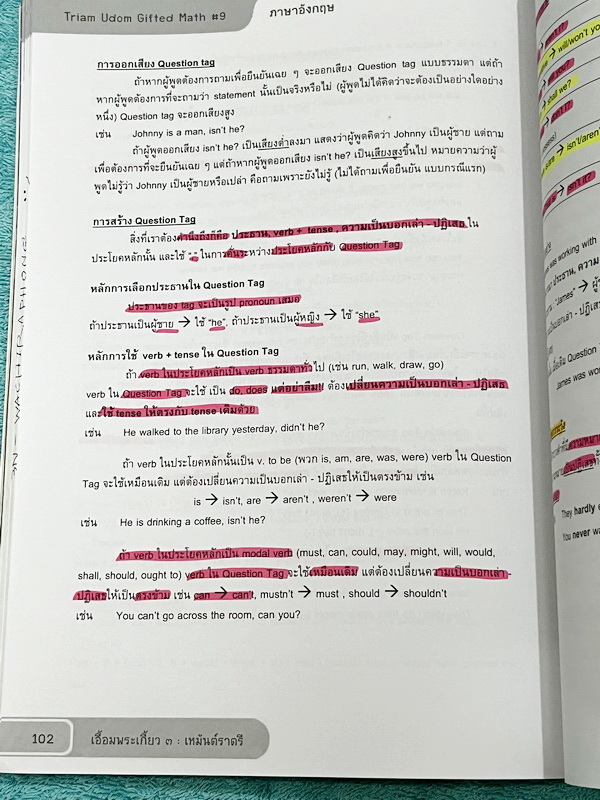 Triam Udom Gifted Math #9
ภาษาอังกฤษ
การออกเสียง Question tag
ถ้าหากผู้พูดต้องการถามเพื่อยืนยันเฉย ๆ จะออกเสียง Question tag แบบธรรมดา แต่ถ้า
หากผู้พูดต้องการที่จะถามว่า statement นั้นเป็นจริงหรือไม่ (ผู้พูดไม่ได้คิดว่าจะต้องเป็นอย่างใดอย่าง
หนึ่ง) Question tag จะออกเสียงสูง
เช่น Johnny is a man, isn't he?
ถ้าผู้พูดออกเสียง isn't he? เป็นเสียงต่ำลงมา แสดงว่าผู้พูดคิดว่า Johnny เป็นผู้ชาย แต่ถาม
เพื่อต้องการที่จะยืนยันเฉย ๆ แต่ถ้าหากผู้พูดออกเสียง isn't he? เป็นเสียงสูงขึ้นไป หมายความว่าผู้
พูดไม่รู้ว่า Johnny เป็นผู้ชายหรือเปล่า คือถามเพราะยังไม่รู้ (ไม่ได้ถามเพื่อยืนยัน แบบกรณีแรก)
การสร้าง Question Tag
สิ่งที่เราต้องคำนึงถึงก็คือ ประธาน, verb + tense , ความเป็นบอกเล่า - ปฏิเสธ ใน
ประโยคหลักนั้น และใช้ "," ในการคั่นระหว่างประโยคหลักกับ Question Tag
หลักการเลือกประธานใน Question Tag
ประธานของ tag จะเป็นรูป pronoun เสมอ
ถ้าประธานเป็นผู้ชาย → ใช้ "he", ถ้าประธานเป็นผู้หญิง → ใช้ "she"
หลักการใช้ verb + tense ใน Question Tag
ถ้า verb ในประโยคหลักเป็น verb ธรรมดาทั่วไป (เช่น run, walk, draw, go)
verb ใน Question Tag จะใช้ เป็น do, does แต่อย่าลืม!! ต้องเปลี่ยนความเป็นบอกเล่า - ปฏิเสธ
และใช้ tense ให้ตรงกับ tense เดิมด้วย
เช่น He walked to the library yesterday, didn't he?
ถ้า verb ในประโยคหลักนั้นเป็น v. to be (พวก is, am, are, was, were) verb ใน Question
Tag จะใช้เหมือนเดิม แต่ต้องเปลี่ยนความเป็นบอกเล่า - ปฏิเสธให้เป็นตรงข้าม เช่น
is → isn't, are → aren't , weren't → were
เช่น He is drinking a coffee, isn't he?
ถ้า verb ในประโยคหลักเป็น modal verb (must, can, could, may, might, will, would,
shall, should, ought to) verb ใน Question Tag จะใช้เหมือนเดิม แต่ต้องเปลี่ยนความเป็นบอกเล่า-
ปฏิเสธให้เป็นตรงข้าม เช่น can → can't, mustn't → must , should → shouldn't
เช่น You can't go across the room, can you?
102
เอื้อมพระเกี้ยว ๓ : เหมันต์ราตรี
will/won't yo
shall we?
isn't/aren'
isn't it?
was working with
"James" →
James was wor
They hardly e
You never wa